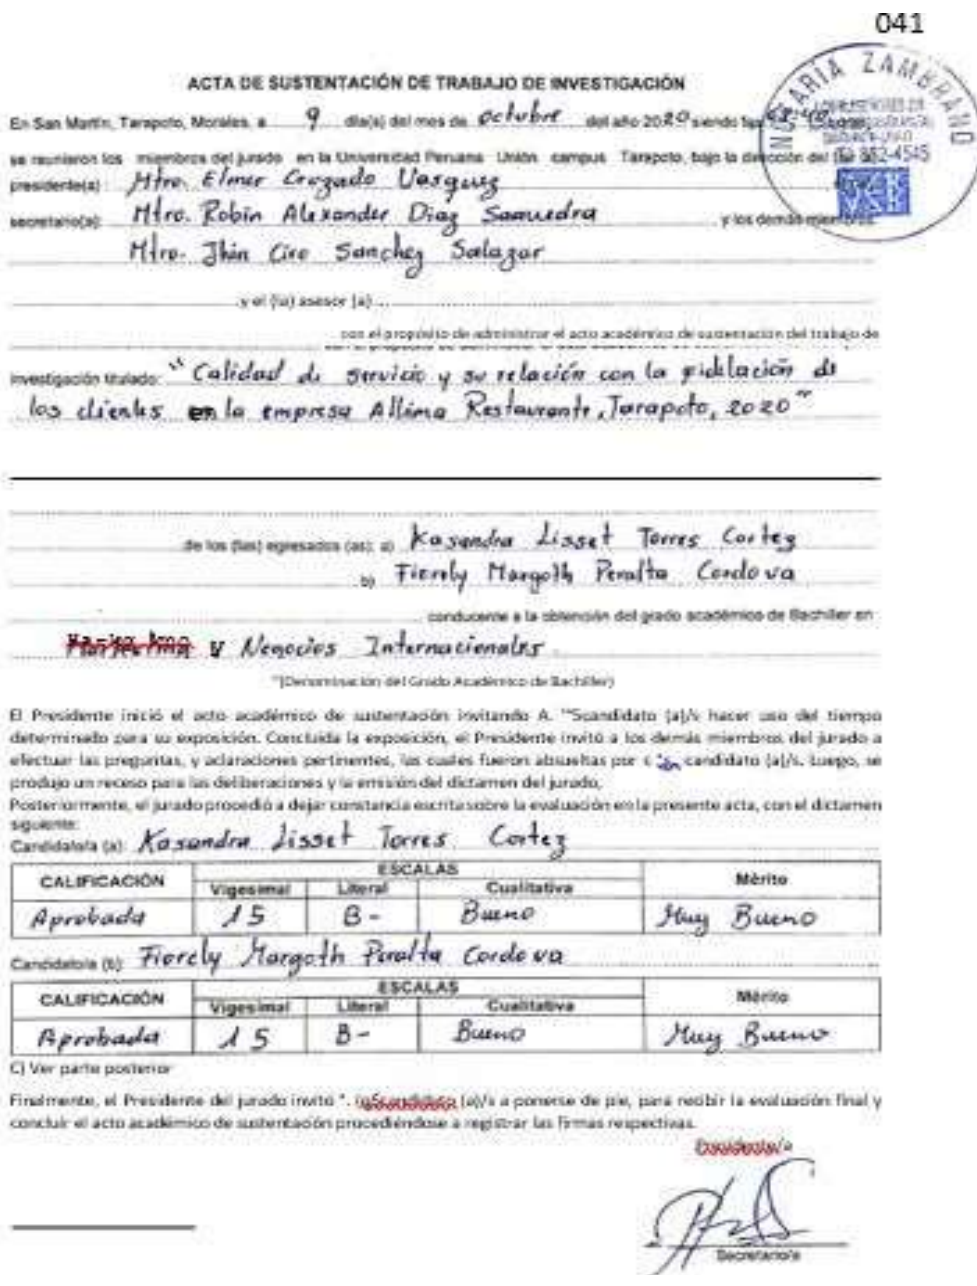 041
NOTARIA ZAMBRANO
ACTA DE SUSTENTACIÓN DE TRABAJO DE INVESTIGACIÓN
En San Martín, Tarapoto, Morales, a 9 día(s) del mes de octubre del año 2020 siendo
se reunieron los miembros del jurado en la Universidad Peruana Unión campus Tarapoto, bajo la dirección del
presidente(a): Mtro. Elmer Cruzado Vasquez
secretario(a): Mtro. Robin Alexander Diaz Saavedra y los demás miembros:
Mtro. Jhin Ciro Sanchez Salazar
y el (la) asesor (a)
con el propósito de administrar el acto académico de sustentación del trabajo de
investigación titulado: "Calidad de servicio y su relación con la fidelación de
los clientes en la empresa Allima Restaurante, Tarapoto, 2020"
de los (las) egresados (as): a) Kasandra Lisset Torres Cortez
b) Fiorely Margoth Peralta Cordova
conducente a la obtención del grado académico de Bachiller en
y Negocios Internacionales
(Denominación del Grado Académico de Bachiller)
El Presidente inició el acto académico de sustentación invitando A. "Scandidato (a)/s hacer uso del tiempo
determinado para su exposición. Concluida la exposición, el Presidente invitó a los demás miembros del jurado a
efectuar las preguntas, y aclaraciones pertinentes, las cuales fueron absueltas por candidato (a)/s. Luego, se
produjo un receso para las deliberaciones y la emisión del dictamen del jurado,
Posteriormente, el jurado procedió a dejar constancia escrita sobre la evaluación en la presente acta, con el dictamen
siguiente:
Candidato/a (a): Kasandra Lisset Torres Cortez
CALIFICACIÓN ESCALAS Mérito
Vigesimal Literal Cualitativa
Aprobada 15 B- Bueno Muy Bueno
Candidato/a (b): Fiorely Margoth Peralta Cordova
CALIFICACIÓN ESCALAS Mérito
Vigesimal Literal Cualitativa
Aprobada 15 B- Bueno Muy Bueno
C) Ver parte posterior
Finalmente, el Presidente del jurado invitó (a)/s a ponerse de pie, para recibir la evaluación final y
concluir el acto académico de sustentación procediéndose a registrar las firmas respectivas.
Presidente/a
Secretario/a